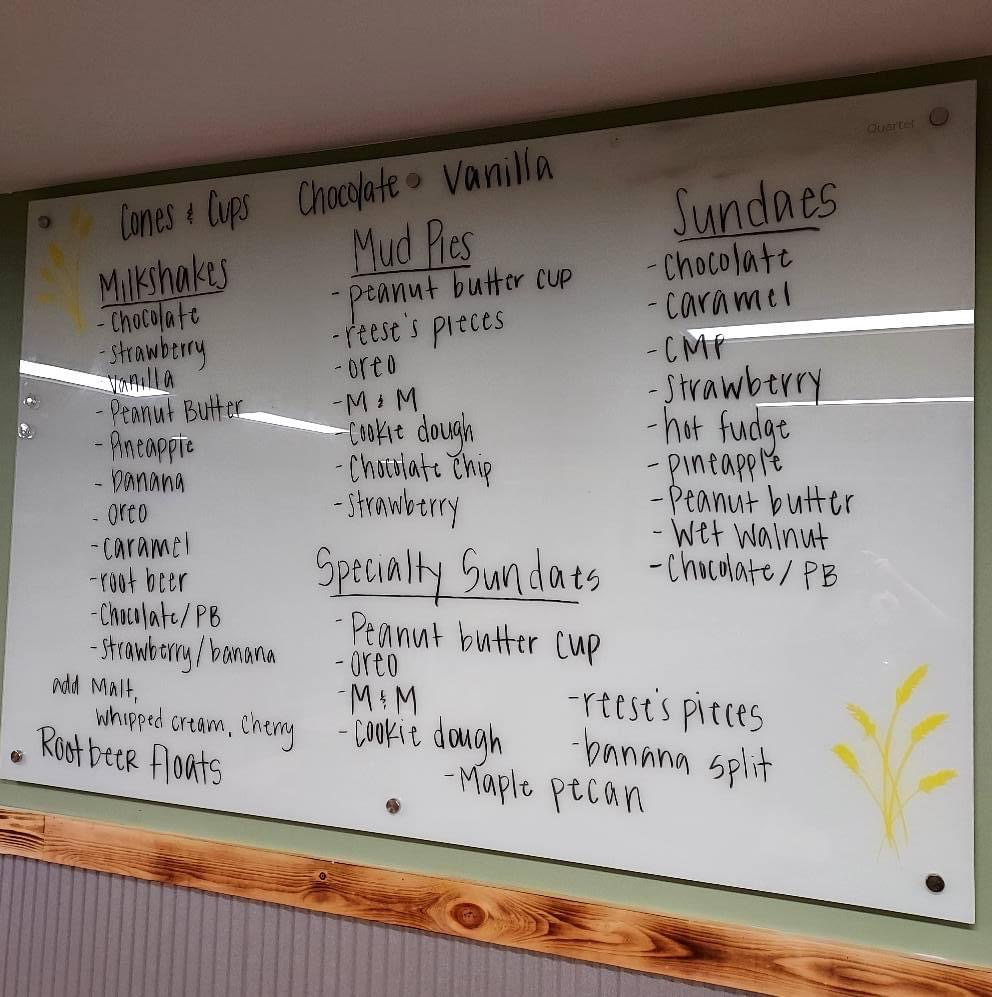 Quartet
Cones & Cups Chocolate • Vanilla
Milkshakes
- Chocolate
- strawberry
- Vanilla
- Peanut Butter
- Pineapple
- banana
- oreo
- caramel
- root beer
- Chocolate/PB
- strawberry/banana
add Malt,
whipped cream, cherry
Root beer Floats
Mud Pies
- peanut butter cup
- reese's pieces
- oreo
- M & M
- Cookie dough
- Chocolate chip
- strawberry
Specialty Sundaes
- Peanut butter cup
- oreo
- M & M
- cookie dough
- reese's pieces
- banana split
- Maple pecan
Sundaes
- chocolate
- caramel
- CMP
- strawberry
- hot fudge
- pineapple
- Peanut butter
- Wet Walnut
- Chocolate/ PB